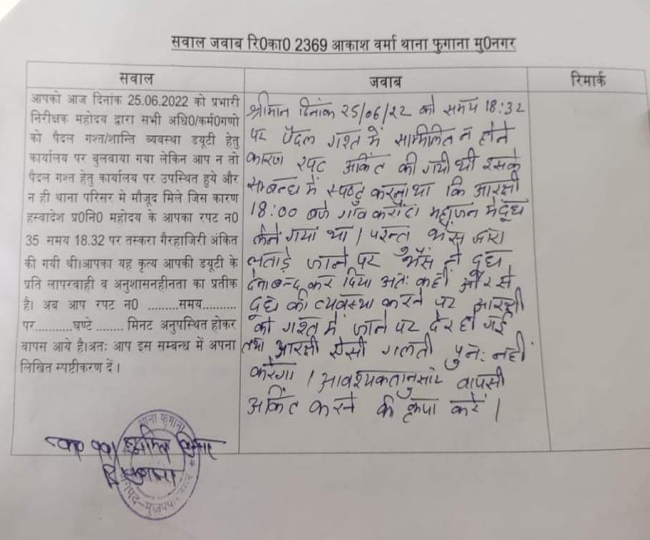 सवाल जवाब रि0का0 2369 आकाश वर्मा थाना फुगाना मु0नगर
सवाल
आपको आज दिनांक 25.06.2022 को प्रभारी
निरीक्षक महोदय द्वारा सभी अधि0/कर्म0गणो
को पैदल गश्त/शान्ति व्यवस्था डयूटी हेतु
कार्यालय पर बुलवाया गया लेकिन आप न तो
पैदल गश्त हेतु कार्यालय पर उपस्थित हुये और
न ही थाना परिसर मे मौजूद मिले जिस कारण
हस्वादेश प्र0नि0 महोदय के आपका रपट न0
35 समय 18.32 पर तस्करा गैरहाजिरी अंकित
की गयी थी।आपका यह कृत्य आपकी डयूटी के
प्रति लापरवाही व अनुशासनहीनता का प्रतीक
है। अब आप रपट न0 ........समय..........
पर..........घण्टे ........ मिनट अनुपस्थित होकर
वापस आये है।अतः आप इस सम्बन्ध में अपना
लिखित स्पष्टीकरण दें ।
जवाब
श्रीमान दिनांक 25/06/22 को समय 18:32
पर पैदल गश्त में सम्मिलित न होने
कारण रपट अंकित की गयी थी इसके
सम्बन्ध में स्पष्ट करना था कि आरक्षी
18:00 बजे गांव करौदा महाजन में दूध
लेने गया था। परन्तु भैंस जारा
लताड़े जाने पर भैंस ने दूध
देना बन्द कर दिया अतः कहीं और से
दूध की व्यवस्था करने पर आरक्षी
को गश्त में जाने पर देर हो गई
तथा आरक्षी ऐसी गलती पुनः नहीं
करेगा। आवश्यकतानुसार वापसी
अंकित करने की कृपा करें।
रिमार्क
थाना फुगाना